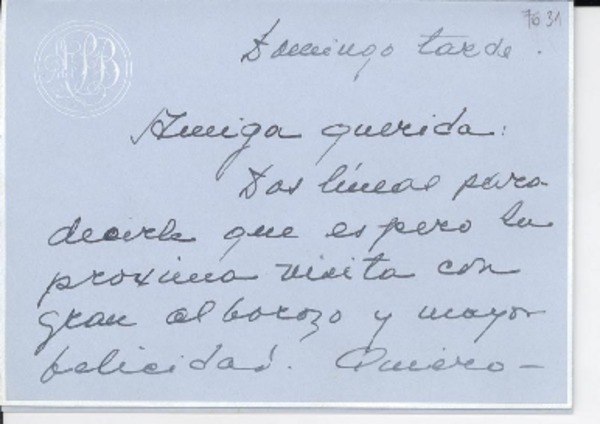 7631
Domingo tarde.
Amiga querida:
Dos líneas para
decirle que espero su
proxima visita con
gran alborozo y mayor
felicidad. Quiero —